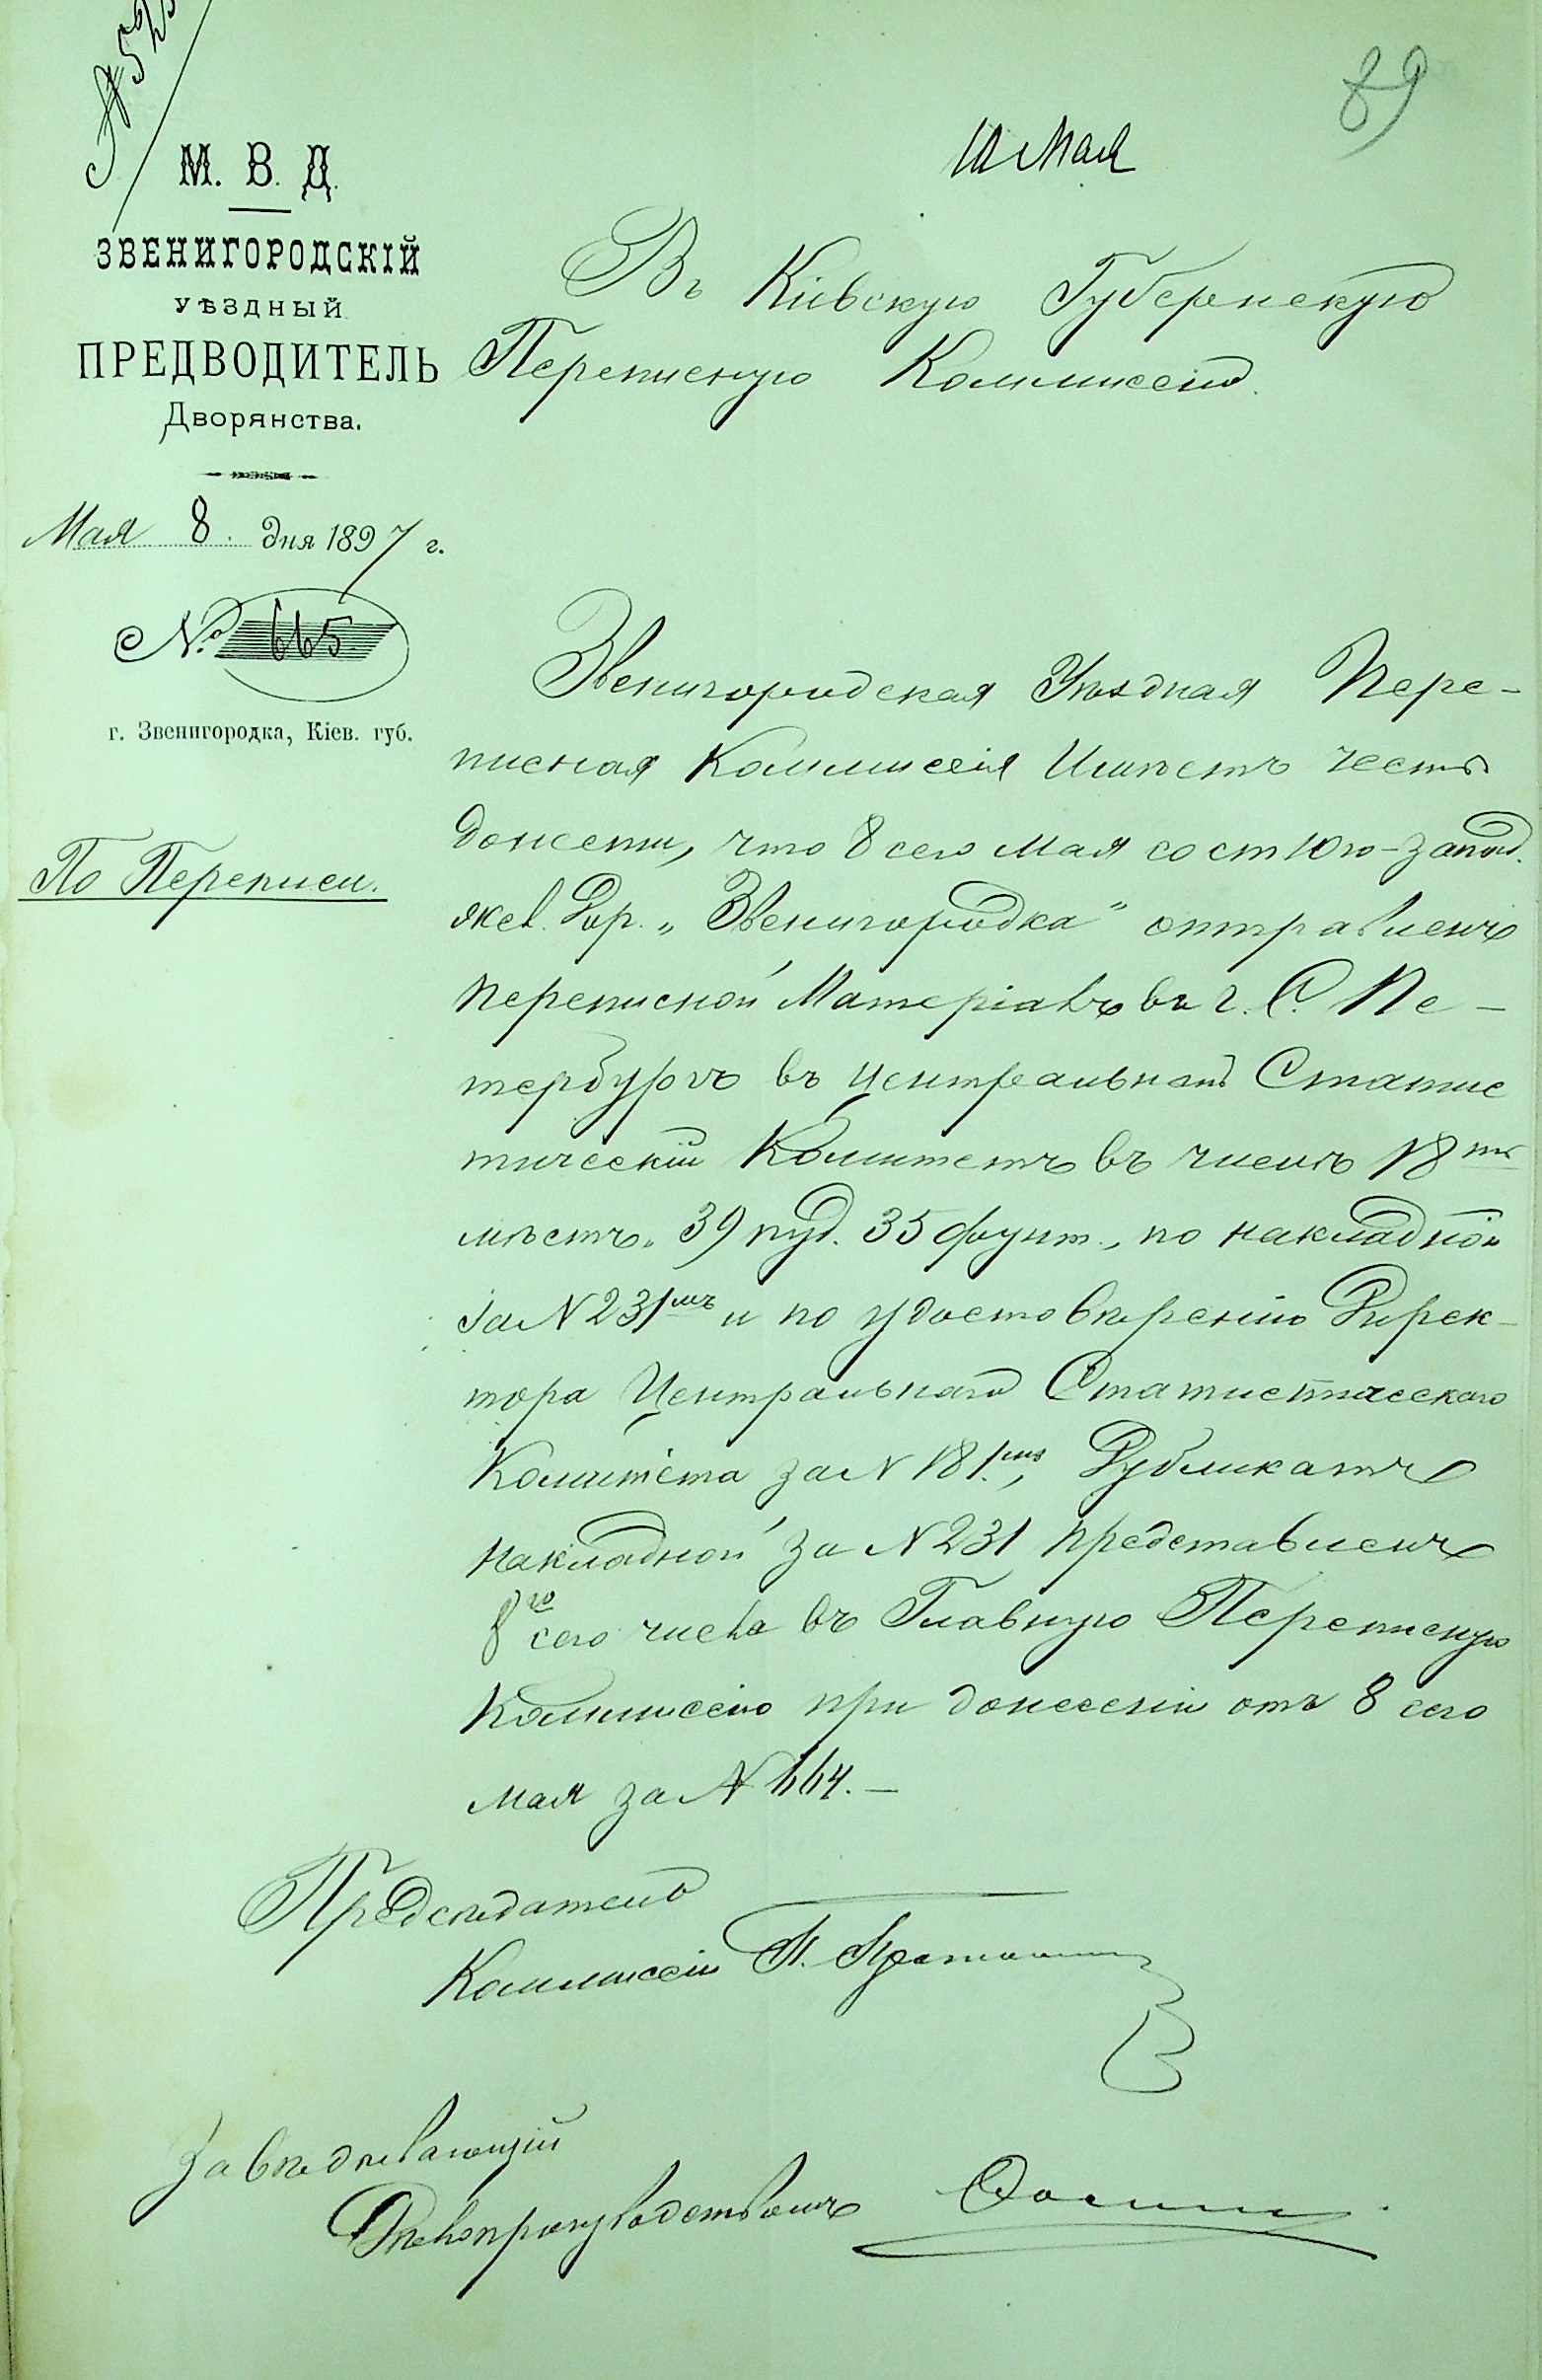 89
10 мая
М. В. Д.
ЗВЕНИГОРОДСКІЙ
УѢЗДНЫЙ
ПРЕДВОДИТЕЛЬ
Дворянства.
Мая 8. дня 1897 г.
№ 665
г. Звенигородка, Кіев. губ.
По Переписи.
Въ Кіевскую Губернскую
Переписную Коммисію.
Звенигородская Уѣздная Пере-
писная Коммиссія Имѣетъ честь
донести, что 8 сего мая со ст Юго-запад.
жел. Дор. „Звенигородка" отправленъ
переписной Матеріалъ въ г. С. Пе-
тербургъ въ Центральный Статис
тическій Комитетъ въ числѣ 18ти
мѣстъ. 39 пуд. 35 фунт., по накладной
за N 231мъ и по удостовѣренію Дирек-
тора Центральнаго Статистическаго
Комитета за N 181.мъ, Дубликатъ
накладной за N 231 представленъ
8го сего числа въ Главную Переписную
Коммиссію при донесеніи отъ 8 сего
мая за N 664.—
Предсѣдатель
Коммиссіи П.
Завѣдывающій
Дѣлопроизводствомъ